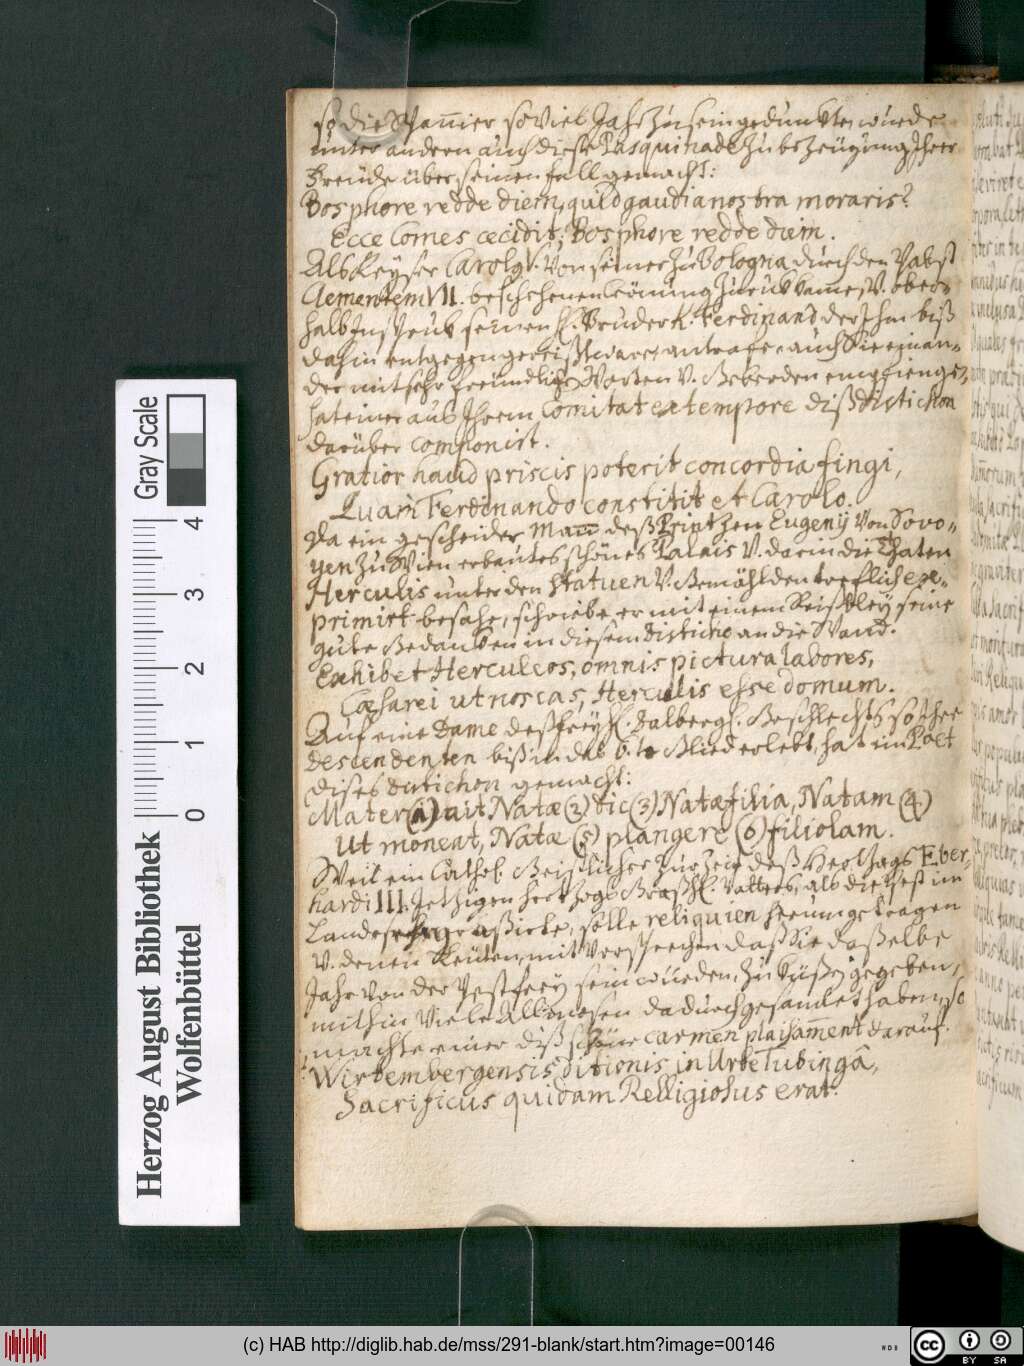 so die Spannier so viel Jahr zu sein gedunckte, wurde
unter andern auch diese Pasquinade zu bezeügung Ihrer
Freüde über seinen fall gemacht:
Bosphore redde diem, quid gaudia nostra moraris?
Ecce Comes cecidit; Bosphore redde diem.
Alß Keyser Carolg V. von seiner zu Bologna durch den Pabst
Clementem VII. beschehenen Crönung zurück kame, V. oberhalb
Inspruk seinen H. Bruder K. Ferdinand der Ihm biß
dahin entgegen gereißt ware, antrafe, auch Sie einan-
der mit sehr freündlich Worten V. Geberden empfienge,
hat einer auß Ihrem Comitat extempore diß distichon
darüber componirt.
Gratior haud priscis poterit concordia fingi,
Quam Ferdinando constitit et Carolo.
Da ein gescheider Mann deß Printzen Eugenÿ von Sovo-
yen zu Wien erbautes schönes Palais V. darin die Thaten
Herculis unter den statuen V. Gemählden treflich ex-
primirt besahe, schriebe er mit einem Reißbley seine
gute Gedancken in diesem disticho an die Wand.
Exhibet Herculeos, omnis pictura labores,
Cæsarei ut noscas, Herculis esse domum.
Auf eine Dame deß freyh. Dalbergl. Geschlechts so ihre
descendenten biß in das 6.te Glied erlebt, hat ein Poet
dises distichon gemacht:
Mater (1) ait Natæ (2) dic (3) Natæ filia, Natam (4)
Ut moneat, Natæ (5) plangere (6) filiolam.
Weil ein Cathol. Geistlicher zur Zeit deß Hertzogs Eber-
hardi III. Jetzigen Hertzogs Großh. Vatters, als die Pest im
Lande grassirte, solle reliquien herumgetragen
V. denen Leüten, mit versprechen daß Sie dasselbe
Jahr von der Pest frey sein würden, zu küßen gegeben,
mithin viele Allmosen dadurch gesamlet haben, so
machte einer diß schöne carmen plaisament darauf.
Wirtembergensis ditionis in Urbe Tubingâ,
Sacrificus quidam Relligiosus erat.
Herzog August Bibliothek
Wolfenbüttel
Gray Scale
0 1 2 3 4
(c) HAB http://diglib.hab.de/mss/291-blank/start.htm?image=00146
WDB
CC BY SA